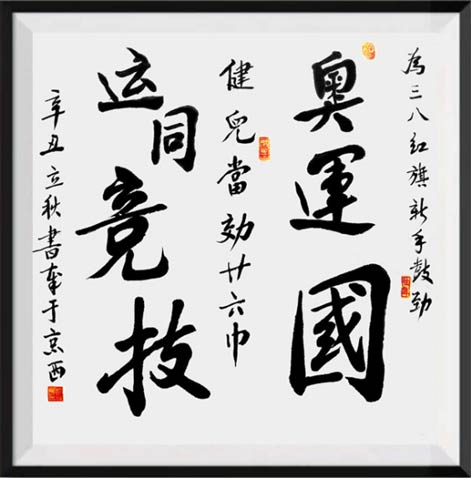 為三八红旗新手鼓劲
奥運國
健兒當効廿六巾
运同竞技
辛丑立秋書奉于京西